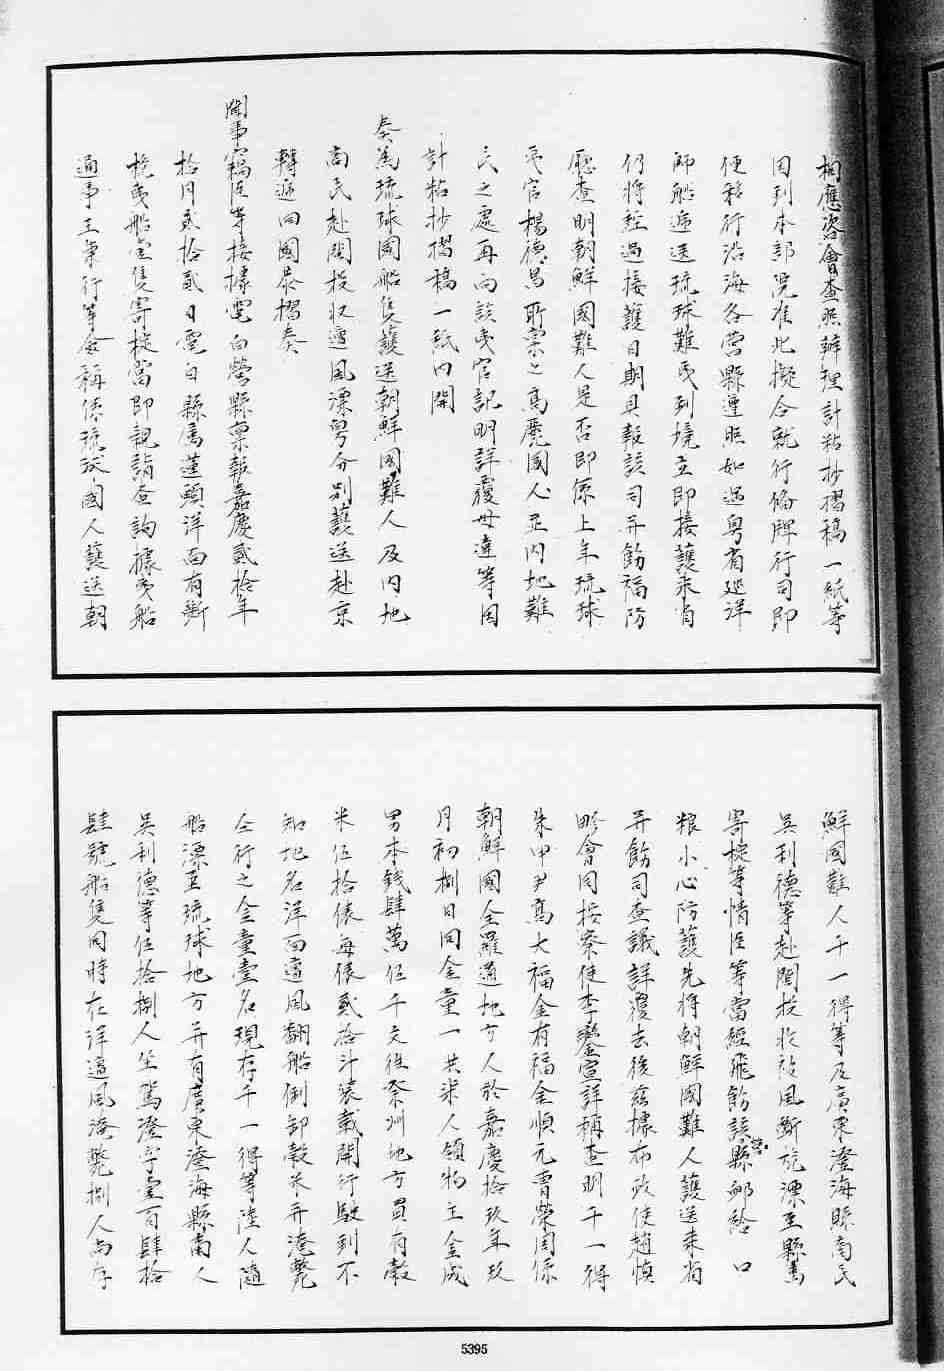 相應咨會查照辦理計粘抄摺稿一紙等
因到本部院准此擬合就行備牌行司即
便移行沿海各營縣遵照如遇粵省巡洋
師船遞送琉球難民到境立即接護來省
仍將經過接護日期具報該司并飭福防
廳查明朝鮮國難人是否即係上年琉球
夷官楊德昌所稟之高麗國人並內地難
民之處再向該夷官訊明詳覆毋違等因
計粘抄摺稿一紙內開
奏為琉球國船隻護送朝鮮國難人及內地
商民赴閩投收遭風漂粵分別護送赴京
轉遞回國恭摺奏
聞事竊臣等接據電白營縣稟報嘉慶貳拾年
拾月貳拾貳日電白縣屬蓮頭洋面有斷
桅夷船壹隻寄椗當即親詣查詢據夷船
通事王秉行等僉稱係琉球國人護送朝
鮮國難人千一得等及廣東澄海縣商民
吳利德等赴閩投收被風斷桅漂至縣
寄椗等情臣等當經飛飭該營縣卹給口
粮小心防護先將朝鮮國難人護送來省
并飭司查議詳覆去後茲據布政使趙慎
畛會同按察使李鑾宣詳稱查明千一得
朱甲尹高大福金有福金順元曹榮周係
朝鮮國全羅道地方人於嘉慶拾玖年玖
月初捌日同金童一共柒人領物主金成
男本錢肆萬伍千文往祭州地方買有穀
米伍拾俵每俵貳拾斗裝載開行駛到不
知地名洋面遭風翻船倒卸穀米并淹斃
仝行之金童壹名現存千一得等陸人隨
船漂至琉球地方并有廣東澄海縣商人
吳利德等伍拾捌人坐駕澄字壹百肆拾
肆號船隻同時在洋遭風淹斃捌人尚存
5395